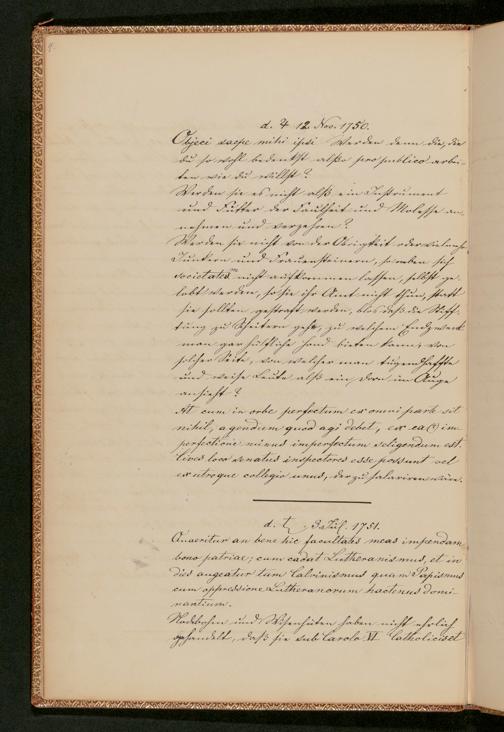 d. ♃ 12. Nov. 1750.
Objeci saepe mihi ipsi Werden denn die, die
du so wohl bedenkst also pro publico arbei-
ten wie du willst?
Werden sie es nicht alss ein Instrument
und Futter der Faulheit und Molesse an-
nehmen und verzehren?
Werden sie nicht von der Obrigkeit oder
Junkern und Frauensteinern, so neben sich
societates nicht aufkommen lassen, selbst ge-
lobt werden, so sie ihr Amt nicht thun, statt
sie sollten gestraft werden, blos dass die Stiff-
tung zu Scheitern gehe, zu welchem Endzweck
man gar hülfliche Hand bieten kann, von
solcher Seite, von welcher man tugendhaffte
und weise Leute alss ein Dorn im Auge
ansieht?
At cum in orbe perfectum ex omni parte sit
nihil, agendum quod agi debet, ex ea (?) im
perfectione minus imperfectum seligendum est.
Cives loco senatus inspectores esse possunt vel
ex utroque collegio unus, der zu salariren wäre.
d. ♄ 3 Jul. 1751.
Quaeritur an bene hic facultates meas impendam
bono patriae; cum cadat Lutheranismus, et in
dies augeatur tam Calvinismus quam Papismus
cum oppressione Lutheranorum hactenus domi-
nantium.
und haben nicht ehrlich
gehandelt, dass sie sub Carolo VI. Catholicis et